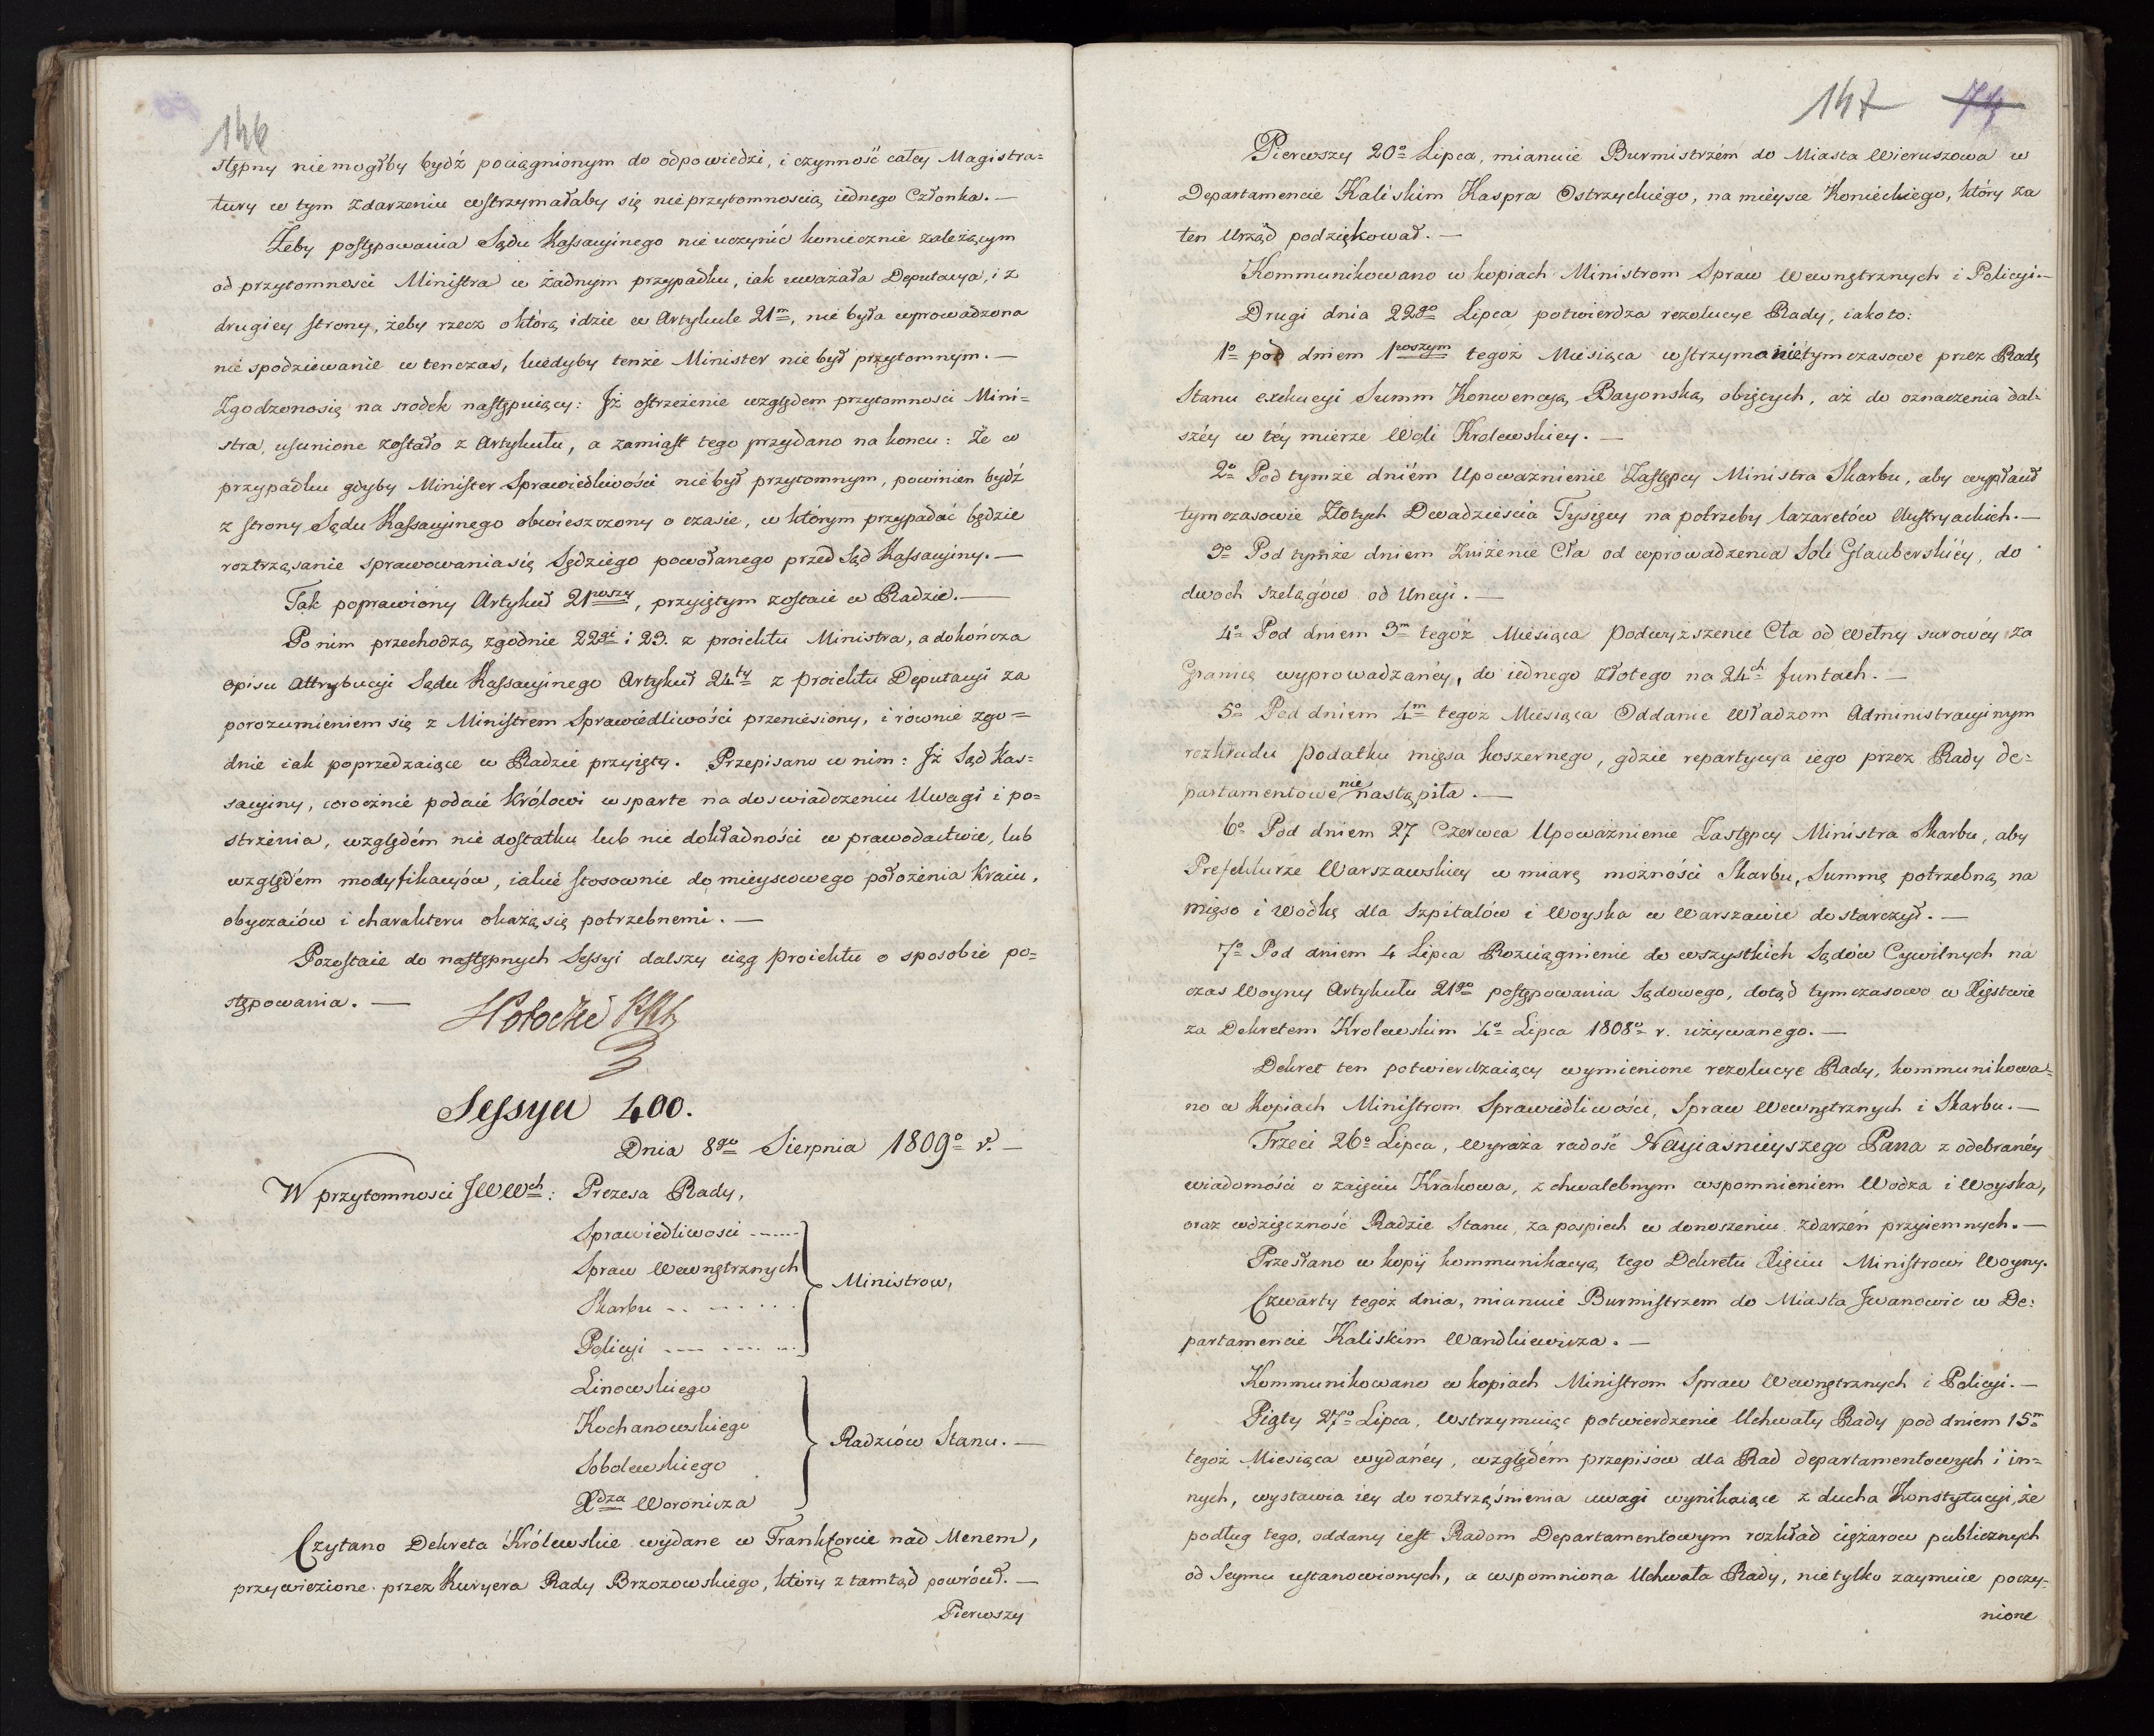 146
stępny nie mogłby bydź pociągnionym do odpowiedzi, i czynność całey Magistra=
tury w tym zdarzeniu wstrzymałaby się nieprzytomnoscią iednego Członka. —
Żeby postępowania Sądu Kassacyinego nie uczynić koniecznie zależącym
od przytomnosci Ministra w żadnym przypadku, iak uważała Deputacya, i z
drugiey strony, żeby rzecz o którą idzie w Artykule 21m, nie była wprowadzona
nie spodziewanie w tenczas, kiedyby tenże Minister nie był przytomnym. —
Zgodzonosię na srodek następuiący: Jż ostrzeżenie względem przytomnosci Mini=
stra, usunione zostało z Artykułu, a zamiast tego przydano na koncu: Że w
przypadku gdyby Minister Sprawiedliwości niebył przytomnym, powinien bydź
z strony Sądu Kassacyinego obwieszczony o czasie, w którym przypadać będzie
roztrząsanie sprawowania się Sędziego powołanego przed Sąd Kassacyiny. —
Tak poprawiony Artykuł 21wszy, przyiętym zostaie w Radzie. —
Po nim przechodzą zgodnie 22gi i 23. z proiektu Ministra, a dokończa
opisu Attrybucyi Sądu Kassacyinego Artykuł 24ty z proiektu Deputacyi za
porozumieniem się z Ministrem Sprawiedliwości przeniesiony, i równie zgo=
dnie iak poprzedzaiące w Radzie przyięty. Przepisano w nim: Jż Sąd Kas=
sacyiny, corocznie podaie Królowi wsparte na doswiadczeniu Uwagi i po=
strzeżenia, względem nie dostatku lub nie dokładności w prawodactwie, lub
względem modyfikacyów, iakie stosownie do mieyscowego położenia Kraiu,
obyczaiów i charakteru okażą się potrzebnemi. —
Pozostaie do następnych Sessyi dalszy ciąg proiektu o sposobie po=
stępowania. —
Sessya 400.
Dnia 8go Sierpnia 1809o r. —
W przytomnosci JWWch: Prezesa Rady,
Sprawiedliwosci
Spraw Wewnętrznych
Skarbu
Policyi
Ministrow,
Linowskiego
Kochanowskiego
Sobolewskiego
Xdza Woronicza
Radziów Stanu. —
Czytano Dekreta Królewskie wydane w Frankforcie nad Menem,
przywiezione przez Kuryera Rady Brzozowskiego, który z tamtąd powrócił. —
Pierwszy
147 74
Pierwszy 20o Lipca, mianuie Burmistrzem do Miasta Wieruszowa w
Departamencie Kaliskim Kaspra Ostrzyckiego, na mieysce Konieckiego, który za
ten Urząd podziękował. —
Kommunikowano w kopiach Ministrom Spraw Wewnętrznych i Policyi. —
Drugi dnia 22go Lipca potwierdza rezolucye Rady, iako to:
1o pod dniem 1wszym tegoż Miesiąca wstrzymanie tymczasowe przez Radę
Stanu exekucyi Summ Konwencyą Bayonską obiętych, aż do oznaczenia dal=
széy w téy mierze Woli Krolewskiey. —
2o Pod tymże dniem Upoważnienie Zastępcy Ministra Skarbu, aby wypłacił
tymczasowie Złotych Dwadzieścia Tysięcy na potrzeby lazaretów Austryackich. —
3o Pod tymże dniem Zniżenie Cła od wprowadzenia Soli Glauberskiéy, do
dwoch szelągów od Uncyi. —
4o Pod dniem 3m tegoż Miesiąca podwyższenie Cła od Wełny surowéy za
Granicę wyprowadzanéy, do iednego Złotego na 24ch funtach. —
5o Pod dniem 4m tegoż Miesiąca Oddanie Władzom Administracyinym
rozkładu podatku mięsa koszernego, gdzie repartycya iego przez Rady de=
partamentowe nie nastąpiła. —
6o Pod dniem 27 Czerwca Upoważnienie Zastępcy Ministra Skarbu, aby
Prefekturze Warszawskiey w miarę możności Skarbu, Summę potrzebną na
mięso i Wodkę dla Szpitalów i Woyska w Warszawie dostarczył. —
7o Pod dniem 4 Lipca Rozciągnienie do wszystkich Sądów Cywilnych na
czas Woyny Artykułu 21go postępowania Sądowego, dotąd tymczasowo w Xięstwie
za Dekretem Krolewskim 4o Lipca 1808o r. używanego. —
Dekret ten potwierdzaiący wymienione rezolucye Rady, kommunikowa=
no w Kopiach Ministrom Sprawiedliwości, Spraw Wewnętrznych i Skarbu. —
Trzeci 26o Lipca, wyraża radość Nayiasnieyszego Pana z odebranéy
wiadomości o zaięciu Krakowa, z chwalebnym wspomnieniem Wodza i Woyska,
oraz wdzięczność Radzie Stanu, za pospiech w donoszeniu zdarzeń przyiemnych. —
Przesłano w kopij kommunikacyą tego Dekretu Xięciu Ministrowi Woyny.
Czwarty tegoż dnia, mianuie Burmistrzem do Miasta Jwanowic w De=
partamencie Kaliskim Wandkiewicza. —
Kommunikowano w kopiach Ministrom Spraw Wewnętrznych i Policyi. —
Piąty 27o Lipca, wstrzymuiąc potwierdzenie Uchwały Rady pod dniem 15m
tegoż Miesiąca wydanéy, względem przepisów dla Rad departamentowych i in=
nych, wystawia iey do roztrząśnienia uwagi wynikaiące z ducha Konstytucyi, że
podług tego, oddany iest Radom Departamentowym rozkład ciężarow publicznych
od Seymu ustanowionych, a wspomniona Uchwała Rady, nie tylko zaymuie poczy=
nione